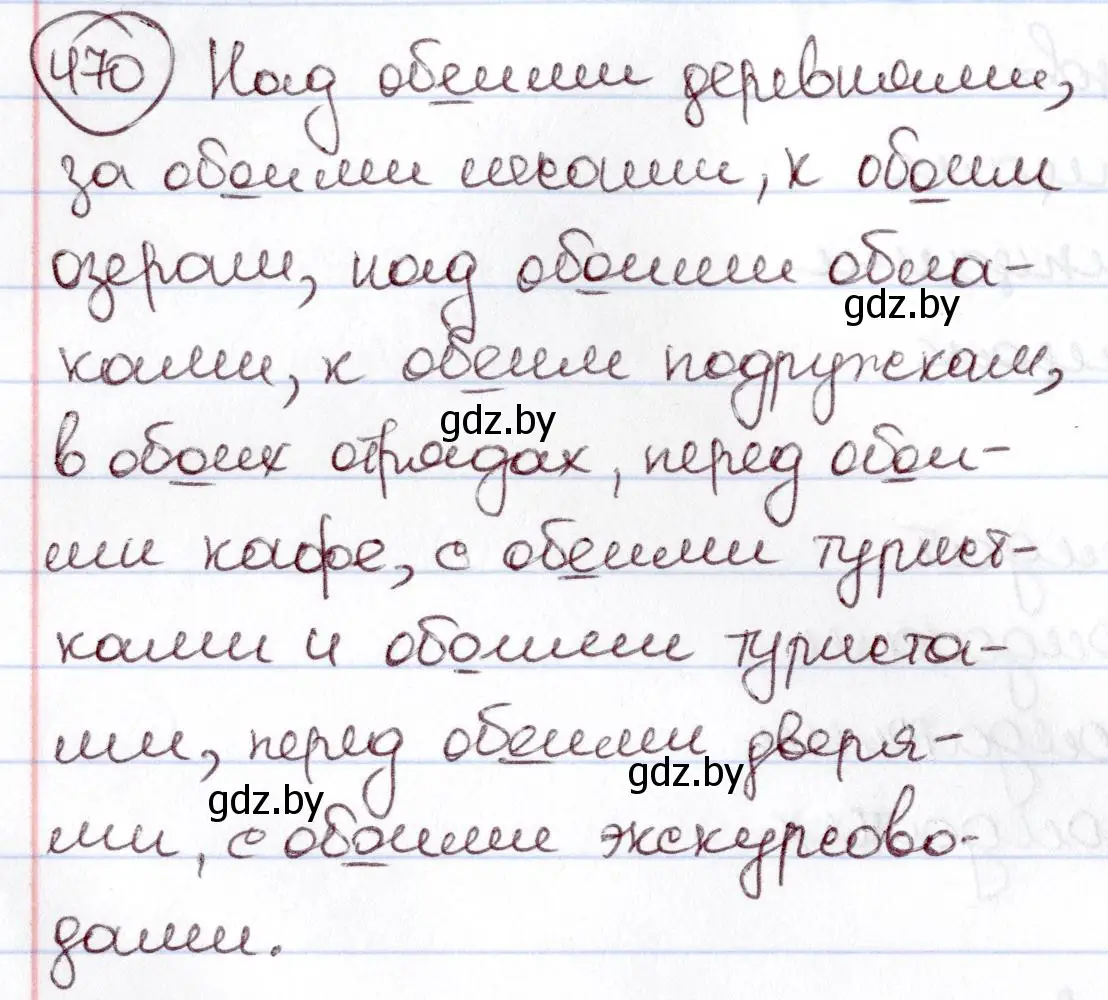 470 Над обеими деревнями,
за обоими шкафами, к обоим
озерам, над обоими обла-
gdz.by
ками, к обеим подружкам,
gdz.by
в обоих отрядах, перед обои-
ми кафе, с обеими турист-
ками и обоими туриста-
ми, перед обеими дверя-
gdz.by
gdz.by
ми, с обоими экскурсово-
дами.